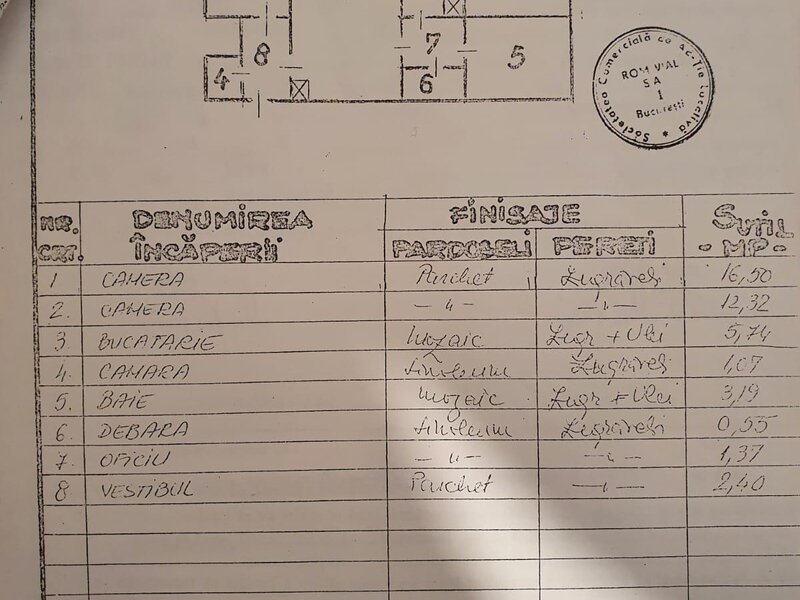 8
7
5
4
6
Societatea Comercială de Acție Locativă *
ROMVIAL
SA
1
București
NR. CRT. DENUMIREA ÎNCĂPERII FINISAJE PARDOSELI PEREȚI S UTIL - MP -
1 CAMERA Parchet Zugrăveli 16,50
2. CAMERA — " — — " — 12,32
3 BUCATARIE Mozaic Zugr + Ulei 5,74
4. CAMARA Linoleum Zugrăveli 1,07
5. BAIE Mozaic Zugr + Ulei 3,19
6. DEBARA Linoleum Zugrăveli 0,55
7. OFICIU — " — — " — 1,37
8 VESTIBUL Parchet — " — 2,40